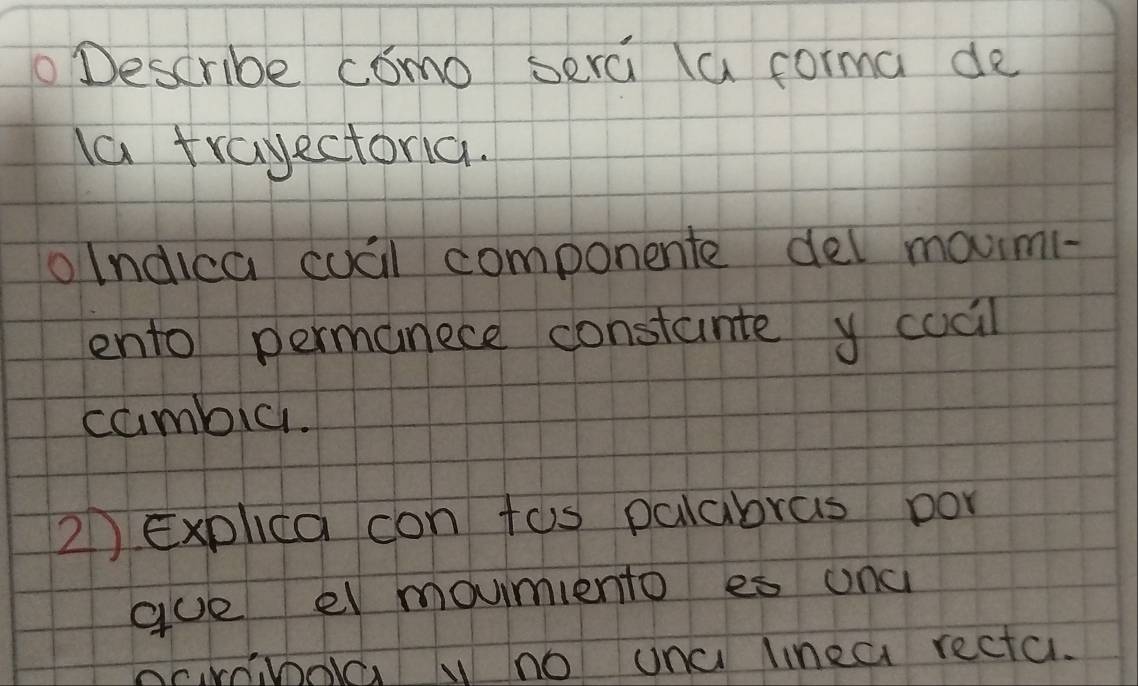 o Describe cómo será la forma de
la trayectoria.
o Indica cuál componente del movimi-
ento permanece constante y cuál
cambia.
2). Explica con tus palabras por
que el movimiento es una
parábola y no una linea recta.